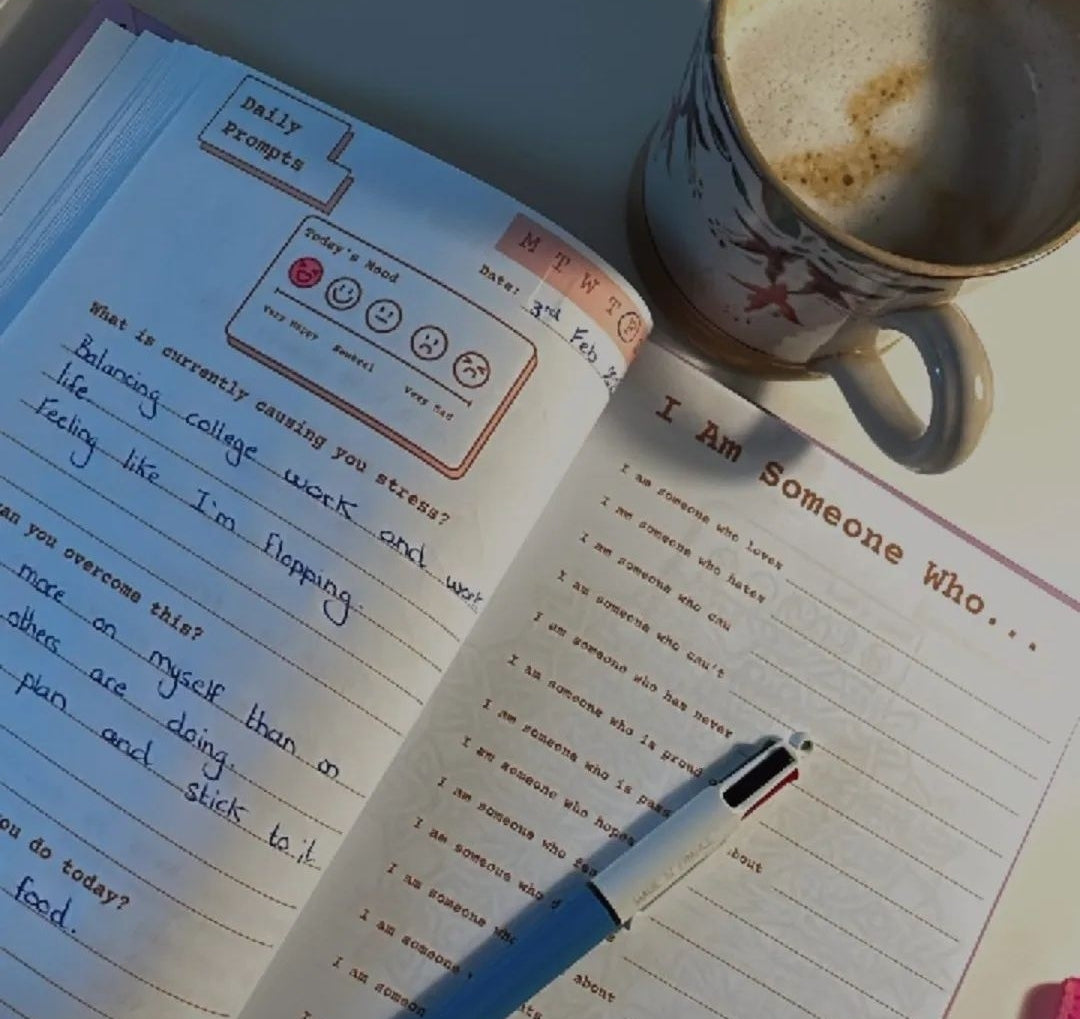 Daily
Prompts
M T W T F
Date: 3rd Feb
Today's Mood
Very Happy Neutral Very Sad
What is currently causing you stress?
Balancing college work and work
life
Feeling like I'm flopping.
can you overcome this?
more on myself than on
others are doing.
plan and stick to it
you do today?
food.
I Am Someone Who...
I am someone who loves
I am someone who hates
I am someone who can
I am someone who can't
I am someone who has never
I am someone who is proud
I am someone who is pass about
I am someone who hopes
I am someone who
I am someone who
I am someone who
I am someone about
I am someon
I